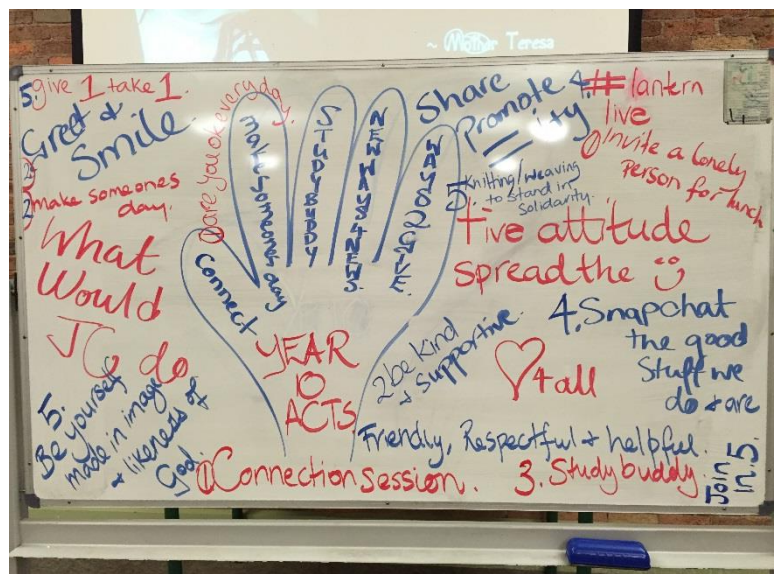 ~ Mother Teresa
5. give 1 take 1.
Greet &
Smile.
2
2 make someones
day.
What
Would
JC do
5.
Be yourself
made in image
+ likeness of
God.
① are you ok everyday.
connect
make someones day
STUDY BUDDY
NEW WAYS 4 NEWS.
WAYS 2 GIVE.
YEAR
10
ACTS
Share
Promote 4.
ity
# lantern
live
① Invite a lonely
Person for lunch
5. Knitting/weaving
to stand in
Solidarity.
+ive attitude
spread the
2 be kind
+ supportive.
♡ 4 all
4. Snapchat
the good
stuff we
do + are
Friendly, Respectful + helpful.
① Connection session.
3. Study buddy
Join
in. 5.